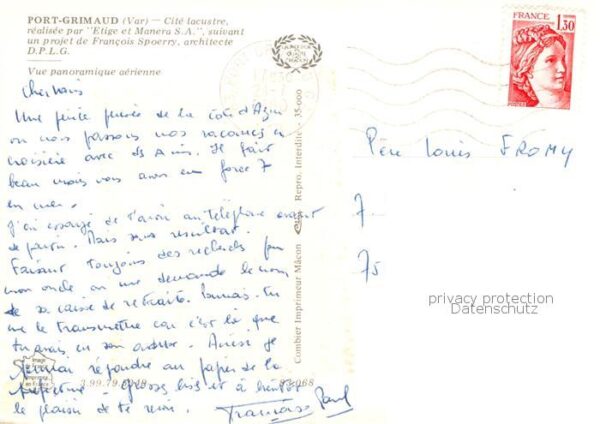 PORT-GRIMAUD (Var) — Cité lacustre,
réalisée par "Etige et Manera S.A.", suivant
un projet de François Spoerry, architecte
D.P.L.G.
Vue panoramique aérienne
Une petite pensée de la Côte d'Azur
où nous passons nos vacances en
croisière avec des Amis. Il fait
beau mais nous avons eu force 7
en mer.
J'ai essayé de t'avoir au téléphone avant
de partir. Mais sans résultat.
Faisant toujours des recherches pour
mon oncle on me demande le nom
de sa caisse de retraite. Pourrais-tu
me le transmettre car c'est là que
tu avais en son
répondre au papier de la
Gros bis et à bientôt
le plaisir de te revoir. Françoise Paul
Combier Imprimeur Mâcon
Repro. Interdite - 35-600
3.99.79.0249
83-068
FRANCE
1,30
POSTES
Père Louis FROMY
7
75
privacy protection
Datenschutz